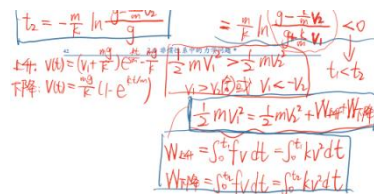 t₂ = -m/k ln (g - k/m v₂)/g
= -m/k ln ((g - k/m v₂)/(g + k/m v₁)) < 0
t₁ < t₂
上升: v(t) = (v₁ + mg/k)e^(-kt/m) - mg/k
下降: v(t) = mg/k (1 - e^(-kt/m))
1/2 mv₁² > 1/2 mv₂²
v₁ > v₂ v₁ < -v₂
1/2 mv₁² = 1/2 mv₂² + W上升 + W下降
W上升 = ∫₀^t₁ fvdt = ∫₀^t₁ kv²dt
W下降 = ∫₀^t₂ fvdt = ∫₀^t₂ kv²dt